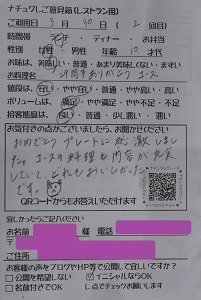 ナチュグしご意見箱(レストラン用)
ご利用日 3月30日(2回目)
時間帯 ランチ・ディナー・お弁当
性別 女性 男性 年齢 10才代
お味は 美味しい・普通・あまり美味しくない・まずい
お料理名 29周年ありがとうコース
価格は 安い・やや安い・普通・やや高い・高い
ボリュームは 満足・やや満足・普通・やや不足・不足
接客態度は 良い・普通・少し悪い・悪い
お気付きの点がございましたら、お聞かせください
おめでとうプレートに感激しま
した。コースの料理も内容が充実
していて、とれもおいしかった
です。
QRコードからもお答えいただけます
宜しかったらご記入ください
お名前 様 電話
〒
ご住所
お客様の声をブログやHP等で公開して宜しいですか?
□公開を希望しない ☑イニシャルならOK
□名前付きでOK ㇾ点でチェック願います